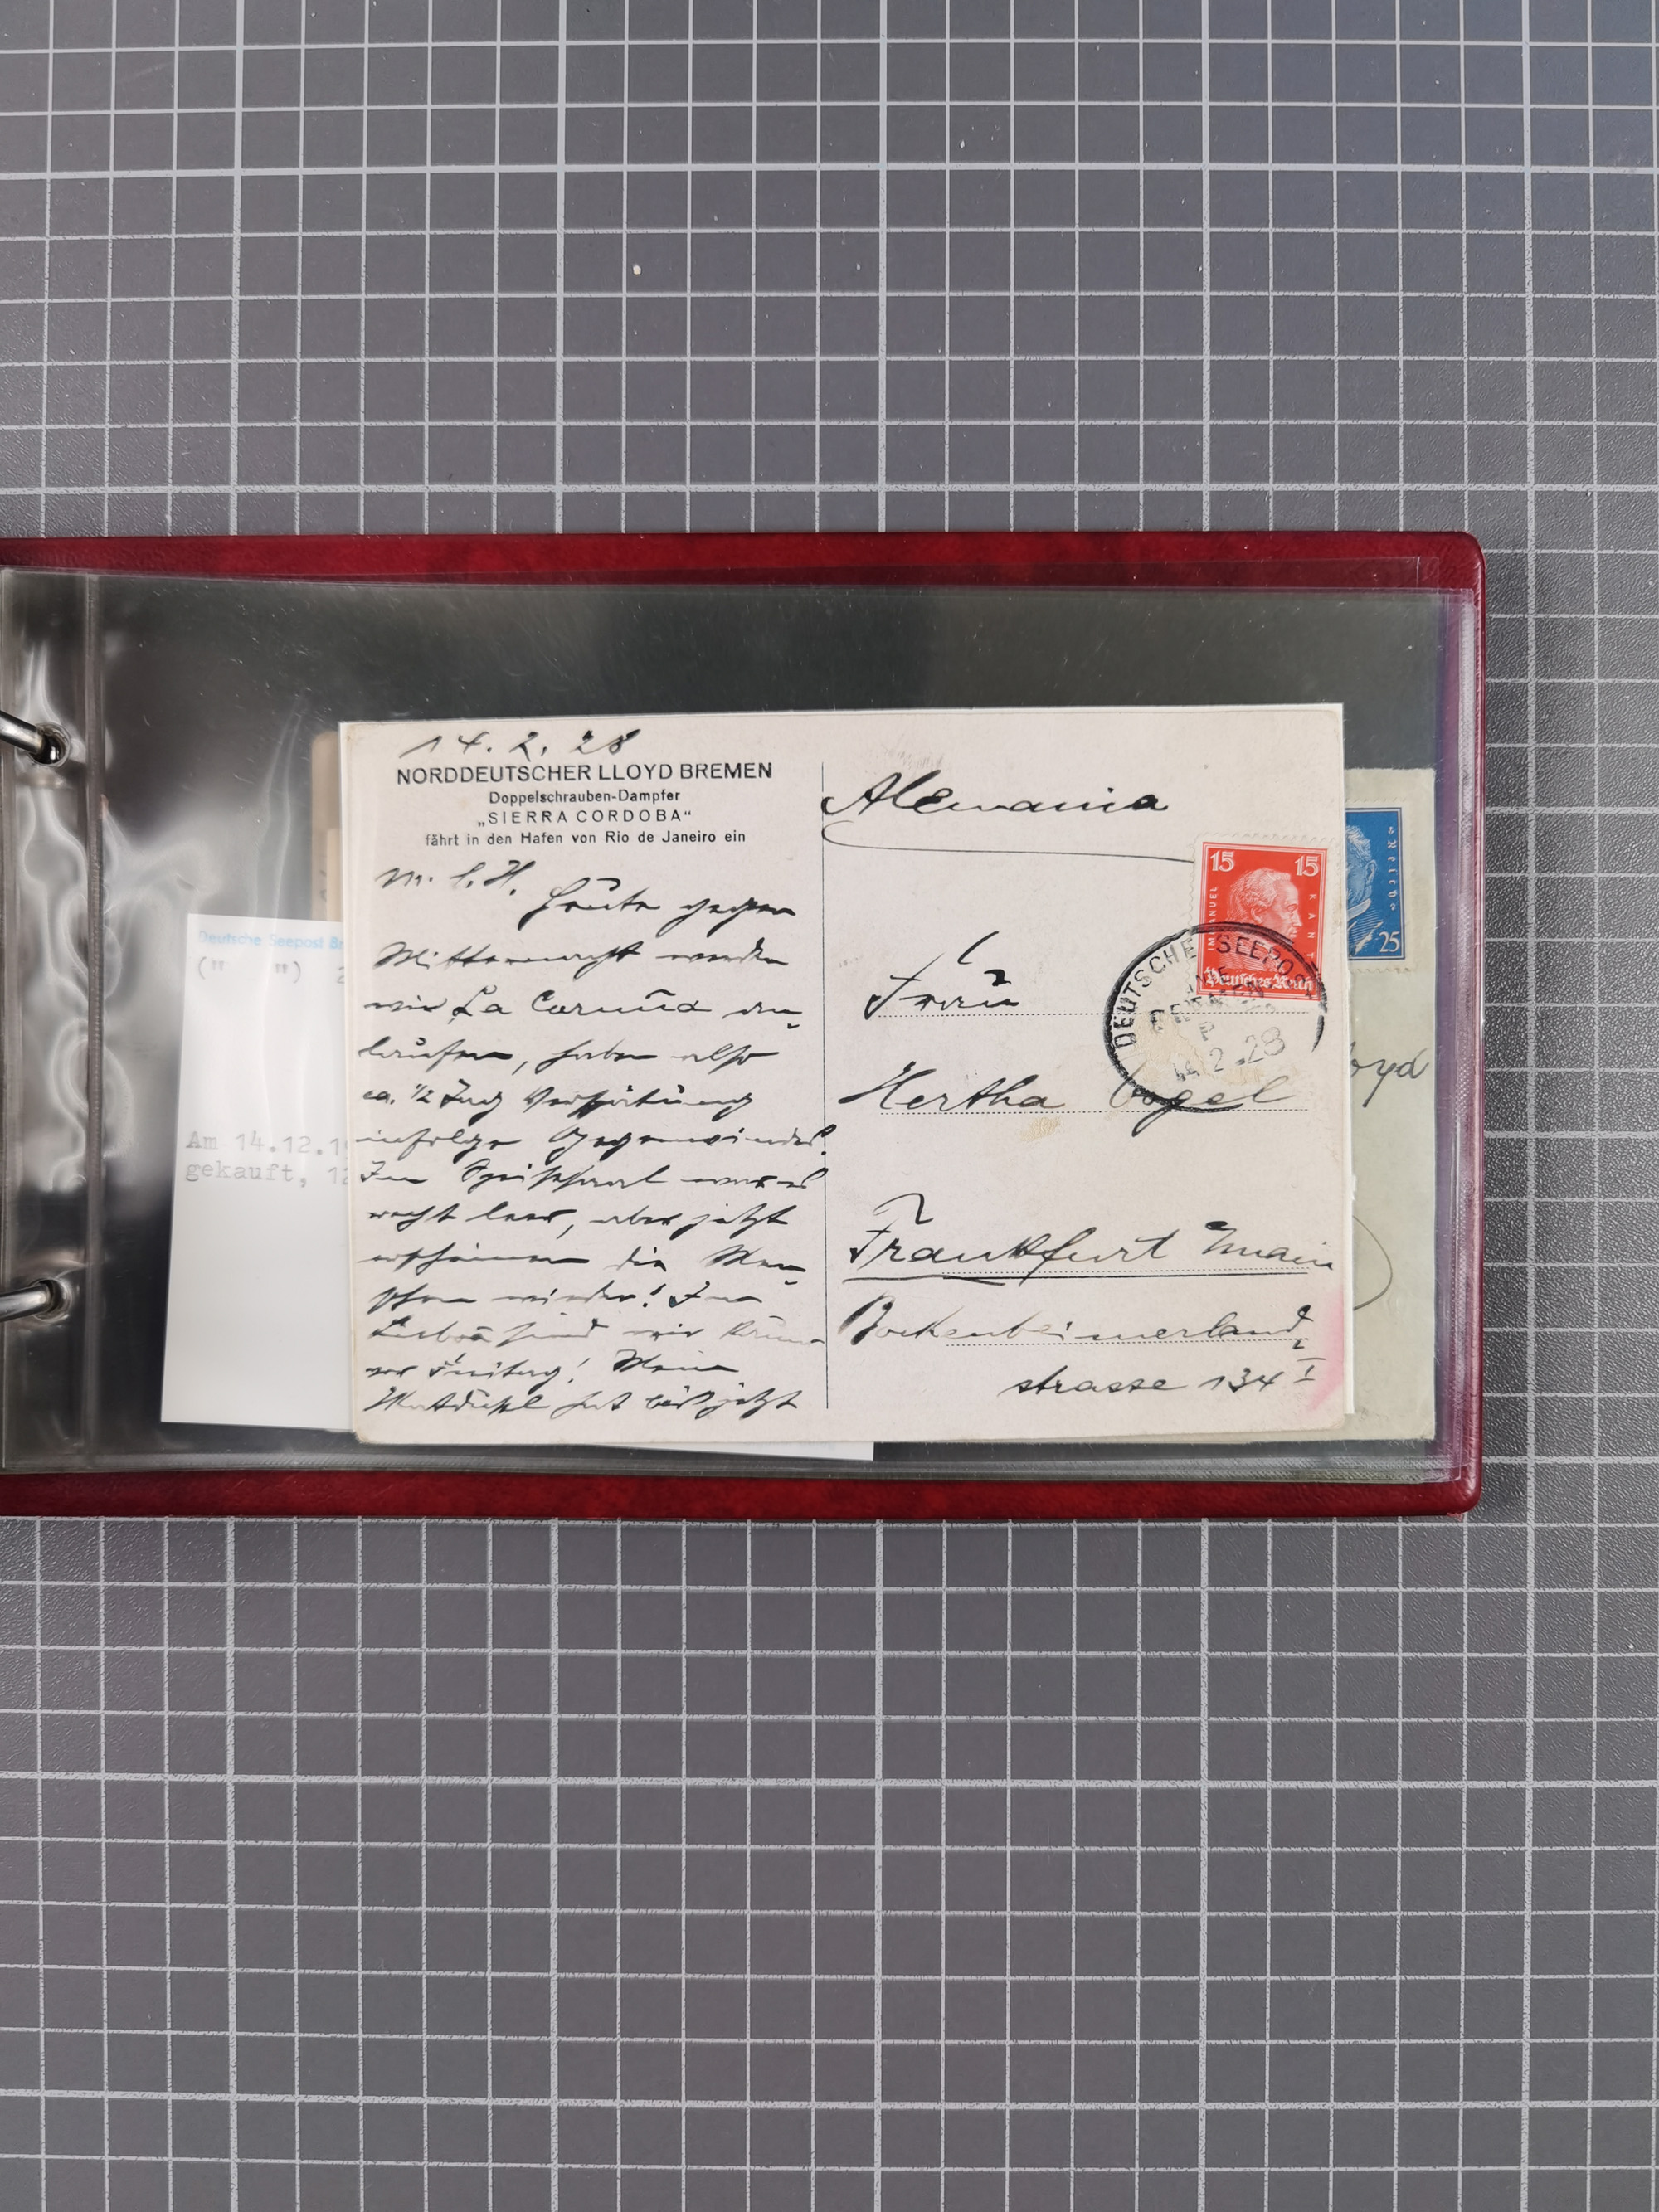 14. 2. 28
NORDDEUTSCHER LLOYD BREMEN
Doppelschrauben-Dampfer
„SIERRA CORDOBA“
fährt in den Hafen von Rio de Janeiro ein
M. l. H.
Heute gegen
Mitternacht werden
wir La Coruña an-
laufen, haben also
ca. ½ Tag Verspätung
infolge Gegenwindes.
Im Speisesaal war es
recht leer, aber jetzt
erscheinen die Men-
schen wieder! In
Lisboa sind wir
vor Freitag! Mein
hat bis jetzt
Alemania
15 15
IMMANUEL KANT
Deutsches Reich
DEUTSCHE SEEPOST
LINIE
BREMEN
P
14.2.28
Frau
Hertha Vogel
Frankfurt Main
Bockenheimerland-
strasse 134 I
25
Deutsche Seepost Br
(" ") 2
Am 14.12.1
gekauft, 12
oyd